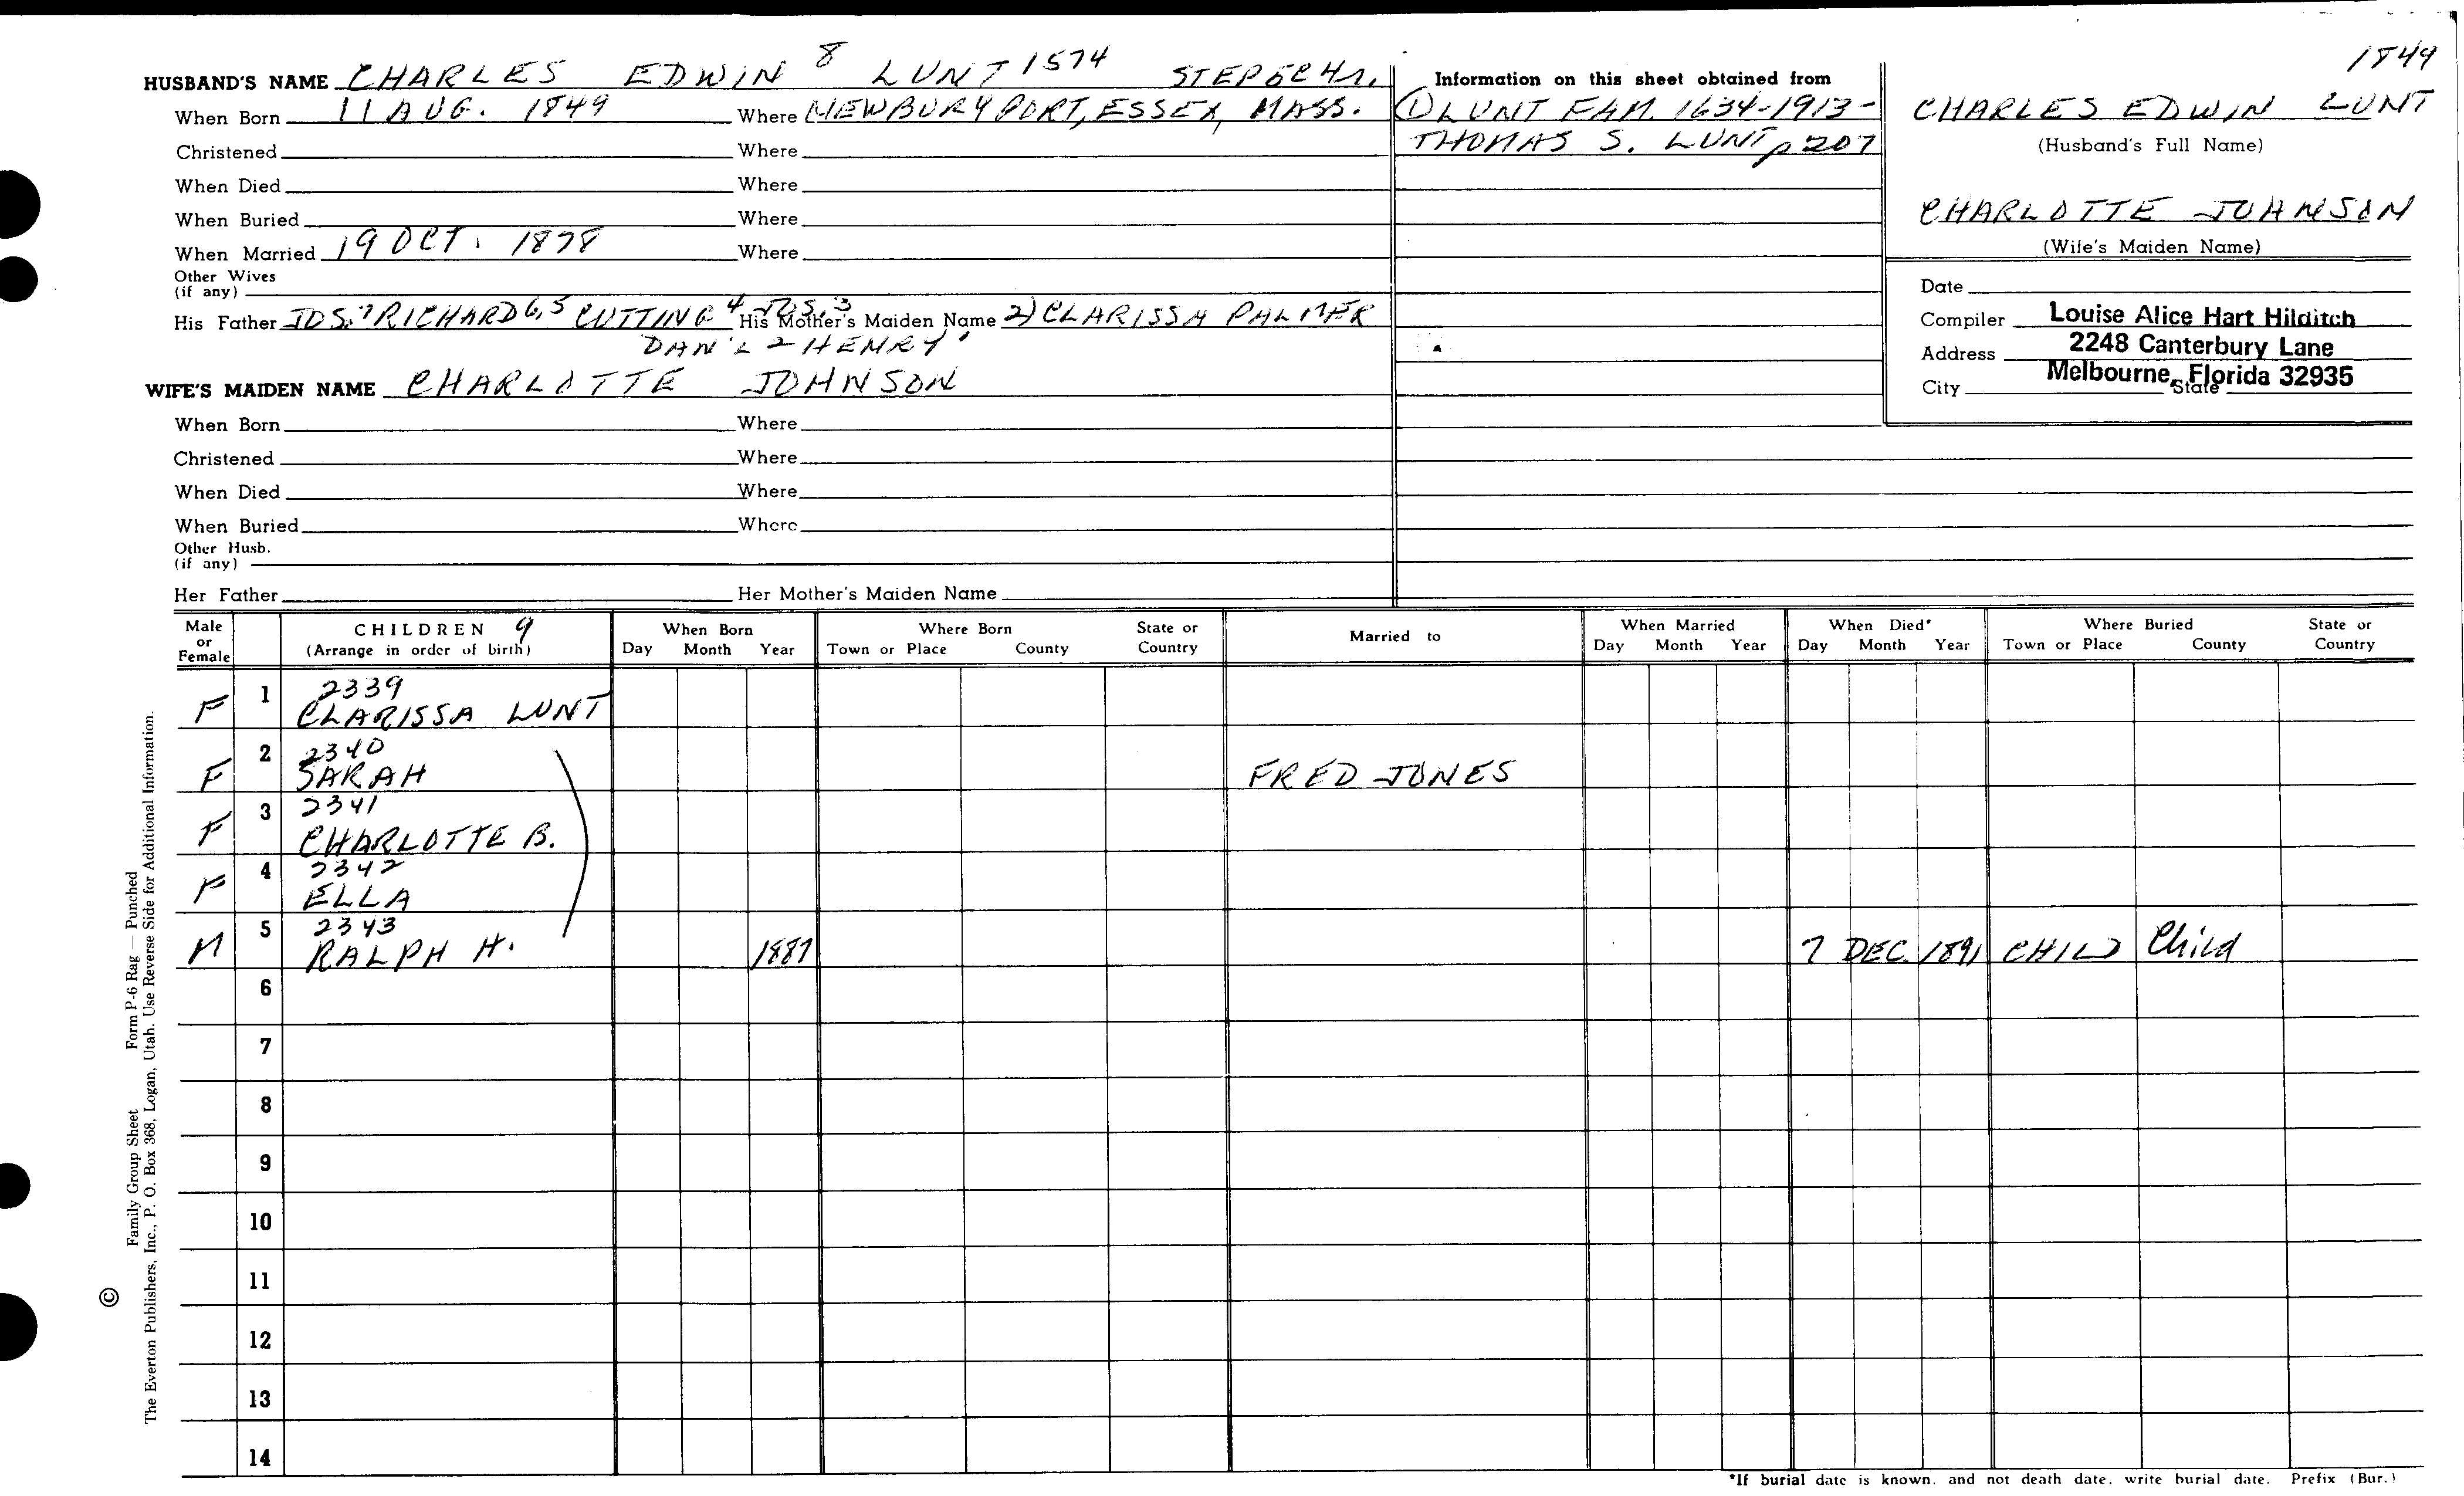 1849
HUSBAND'S NAME CHARLES EDWIN 8 LUNT 1574
Information on this sheet obtained from
When Born 11 AUG. 1849 Where NEWBURYPORT, ESSEX, MASS.
① LUNT FAM. 1634-1913-
CHARLES EDWIN LUNT
Christened Where
THOMAS S. LUNT p 207
(Husband's Full Name)
When Died Where
When Buried Where
CHARLOTTE JOHNSON
When Married 19 OCT. 1878 Where
(Wife's Maiden Name)
Other Wives
(if any)
Date
His Father JOS.7 RICHARD 6,5 CUTTING 4 His Mother's Maiden Name 2) CLARISSA PALMER
Compiler Louise Alice Hart Hilditch
DAN'L 2 HENRY 1
Address 2248 Canterbury Lane
WIFE'S MAIDEN NAME CHARLOTTE JOHNSON
City Melbourne, Florida 32935 State
When Born Where
Christened Where
When Died Where
When Buried Where
Other Husb.
(if any)
Her Father Her Mother's Maiden Name
Male or Female CHILDREN 9 (Arrange in order of birth) When Born Day Month Year Where Born Town or Place County State or Country Married to When Married Day Month Year When Died* Day Month Year Where Buried Town or Place County State or Country
2339
F 1 CLARISSA LUNT
2340
F 2 SARAH FRED JONES
2341
F 3 CHARLOTTE B.
2342
F 4 ELLA
2343
M 5 RALPH H. 1887 7 DEC. 1891 CHILD Child
6
7
8
9
10
11
12
13
14
*If burial date is known, and not death date, write burial date. Prefix (Bur.)
© Family Group Sheet Form P-6 Rag — Punched
The Everton Publishers, Inc., P. O. Box 368, Logan, Utah. Use Reverse Side for Additional Information.